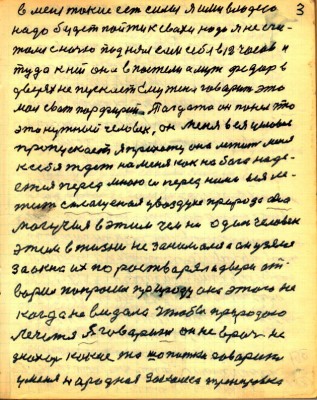 в меня такие есть силы я ими владею
3
надо будет пойти к свахи надо я не спи-
мала с ночлю поднял сам себя в 12 часов и
туда к ней она в постели а муж федор в
дверях не пускает Ему жена говорит это
мой сват порфирий. Тагда то он понял что
это нужный человек, он меня в ея условие
пропускает, я прихожу она лежит меня
к себе ждет на меня как на бога наде-
ется перед мною и перед ними вся ле-
жит самащеная у воздухе природа она
могучия в этим чем ни один человек
этим в жизни не занимался а мы взяли
за окна их по растваряла двери от-
варил попросил природу она этого не
когда не видала чтобы природою
лечится Я говорил он не врач не
знахор какие то шопотки говорит
у меня народная Закалка тренировка